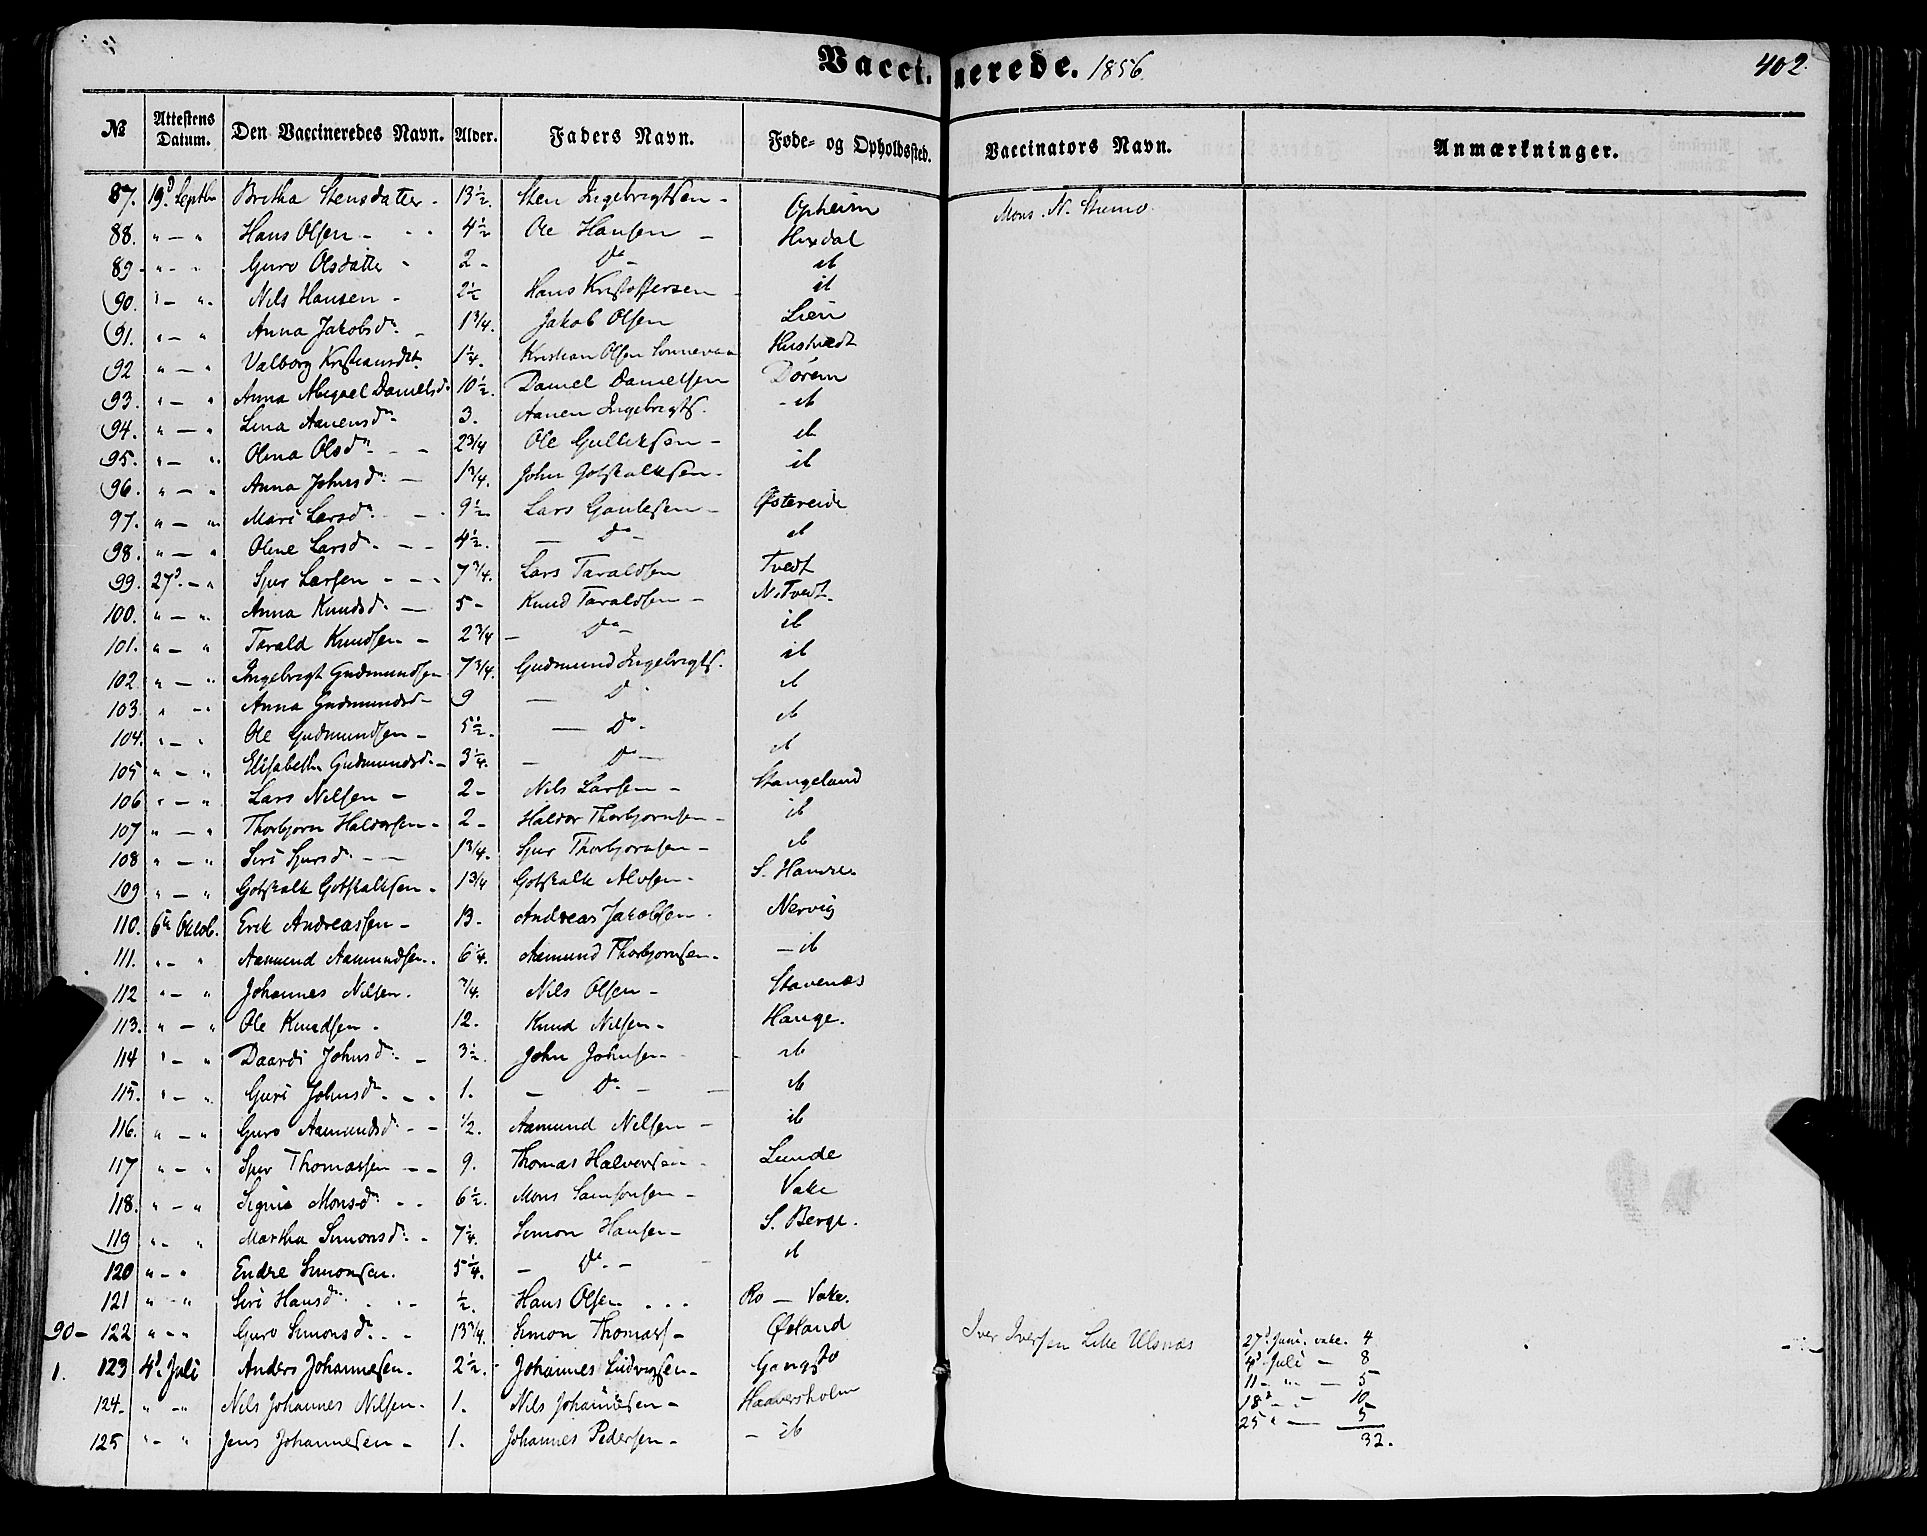 Vaccinerede. 1856. 402.
№ Attestens Datum. Den Vaccineredes Navn. Alder. Faders Navn. Føde- og Opholdssted. Vaccinators Navn. Anmærkninger.
87. 19d Septbr Bretha Stensdatter - 13½. Sten Ingebrigtsen - Opheim Mons N. Stumo
88. " - " Hans Olsen - - - 4½ Ole Hansen - Hixdal
89 - " - " Guro Olsdatter - 2 - Do - ib
90. " - " Nils Hansen - 2½ Hans Kristoffersen - ib
91. " - " Anna Jakobsdr. - 1¾. Jakob Olsen Lien
92 " - " Valborg Kristiansdt. 1¼. Kristian Olsen Sonnevaa Hustvedt
93. " - " Anna Abigael Danielsd. 10½. Daniel Danielsen Dørem
94. " - " Lina Aanensdr 3. Aanen Ingebrigts. - ib
95. " - " Olina Olsdr - - 2¾ Ole Gulleksen - ib
96. " - " Anna Johnsdr. - 1¾. John Gotskalksen. ib
97. " - " Mari Larsdr. - - 9½ Lars Gautesen - Østereide
98. " - " Oline Larsd. - - 4½. - Do - ib
99. 27d. - " Sjur Larsen - - - 7¾. Lars Taraldsen Tvedt
100. " - " Anna Knudsd. - 5 - Knud Taraldsen - N. Tvedt.
101. " - " Tarald Knudsen - 2¾ - Do - ib
102 " - " Ingebrigt Gudmundsen 7¾. Gudmund Ingebrigts. ib
103. " - " Anna Gudmundsd - 9 - D. ib
104. " - " Ole Gudmundsen - 5½. - Do - ib
105 " - " Elisabeth Gudmundsd. - 3¼. - Do - ib
106 " - " Lars Nilsen - 2 - Nils Larsen - Stangeland
107 " - " Thorbjorn Haldorsen - 2 - Haldor Thorbjornsen - ib
108 " - " Siri Sjursd. - - 1¾. Sjur Thorbjornsen - ib
109 " - " Gotskalk Gotskalksen - 1¾ Gotskalk Alvsen - S. Hamre
110. 6te Oktob. Erik Andreassen - 13. Andreas Jakobsen - Nervig
111. " - " Aamund Aamundsen. 6¼. Aamund Thorbjornsen - - ib
112 " - " Johannes Nilsen. ¾. Nils Olsen - Stavenæs
113. " - " Ole Knudsen - 12. Knud Nilsen - Hauge.
114 " - " Daardi Johnsdr. - 3½. John Johnsen - - ib
115. " - " Guri Johnsdr - - 1. - Do. - - ib
116. " - " Guro Aamundsdr - - ½. Aamund Nilsen - ib
117 " - " Sjur Thomassen - - 9. Thomas Halvorsen - Lunde
118. " - " Signe Monsdr - - 6½. Mons Samsonsen - Vake
119 " - " Martha Simonsdr. - 7¼. Simon Hansen - S. Berge.
120 " - " Endre Simonsen. 5¼. - Do. - - ib
121 " - " Siri Hansdr. - - ½. Hans Olsen . . . Ro - Vake.
90 - 122 " - " Guro Simonsdr. - - 13¾. Simon Thomass - Øvland Iver Iversen Lille Ulsnæs 27d Juni. vake. 4
1. 123 4d. Juli Anders Johannesen. 2½. - Johannes Ludvigsen - Gangsto 4d Juli - 8
11 - " - 5
124 - " - " Nils Johannes Nilsen. 1. Nils Johannesen - Haaversholm 18d - " - 10
25 " - 5
125 " - " Jens Johannesen - 1. Johannes Pedersen - - ib 32.